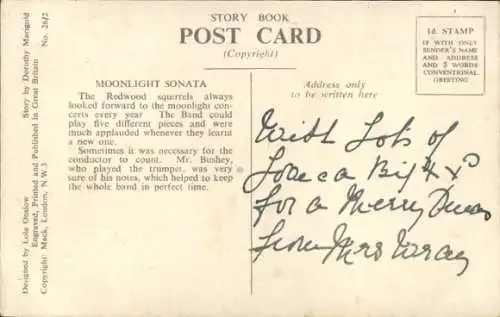 STORY BOOK
POST CARD
(Copyright)
1d. STAMP
IF WITH ONLY
SENDER'S NAME
AND ADDRESS
AND 5 WORDS
CONVENTIONAL
GREETING
MOONLIGHT SONATA
The Redwood squirrels always
looked forward to the moonlight con-
certs every year. The Band could
play five different pieces and were
much applauded whenever they learnt
a new one.
Sometimes it was necessary for the
conductor to count. Mr. Bushey,
who played the trumpet, was very
sure of his notes, which helped to keep
the whole band in perfect time.
Address only
to be written here
With Lots of
Love & a Big
for a Merry
from Mrs Wray
Designed by Lola Onslow Story by Dorothy Marigold
Engraved, Printed and Published in Great Britain
Copyright: Mack, London, N.W.3 No. 26/2